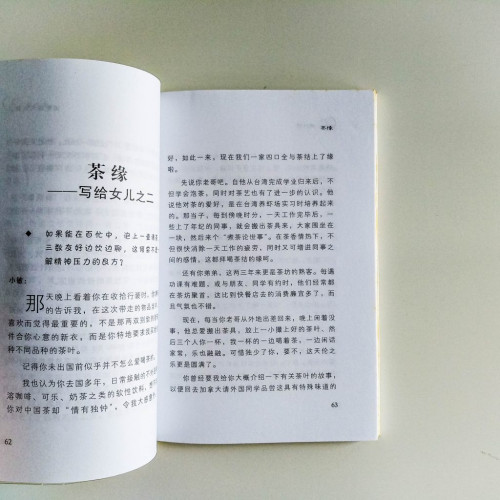 茶缘
——写给女儿之二
◆ 如果能在百忙中,沏上一壶
三数友好边饮边聊,这
解精神压力的良方?
小敏:
那天晚上看着你在收拾行装时,
的告诉我,在这次带走的物品
喜欢而觉得最重要的,不是那两
件合你心意的新衣,而是你特地要求我买
种不同品种的茶叶。
记得你未出国前似乎并不怎么爱喝茶
我也认为你去国多年,日常接触的不
溶咖啡,可乐、奶茶之类的软性饮料,
你对中国茶却“情有独钟”,令我大感
62
茶缘
好,如此一来,现在我们一家四口全与茶结上了缘
啦。
先说你老哥吧。自他从台湾完成学业归来后,不
但学会泡茶,同时对茶艺也有了进一步的认识。我
说他对茶的爱好,是在台湾养虾场实习时培养起来
的。那当子,每到傍晚时分,一天工作完毕后,一
些上了年纪的同事,就会搬出茶具来,大家围坐在
一块,然后来个“煮茶论世事”。在茶香情热下,不
但很快消除一天工作的疲劳,同时又可增进同事之
间的感情,这都拜喝茶结的缘呵。
还有你弟弟。这两三年来更是茶坊的熟客。每逢
功课有难题,或与朋友、同学有约时,他们经常都
在茶坊聚首,达比到快餐店去的消费廉宜多了,而
且气氛也不错。
现在,每当你老哥从外地出差回来,晚上闲着没
事,他总爱搬出茶具,放上一小撮上好的茶叶。然
后三个人你一杯,我一杯的一边喝着茶,一边闲话
家常,乐也融融。可惜独少了你,要不,这天伦之
乐更是圆满了。
你曾经要我给你大概介绍一下有关茶叶的故事,
以便回去加拿大请外国同学品尝这具有特殊味道的
63